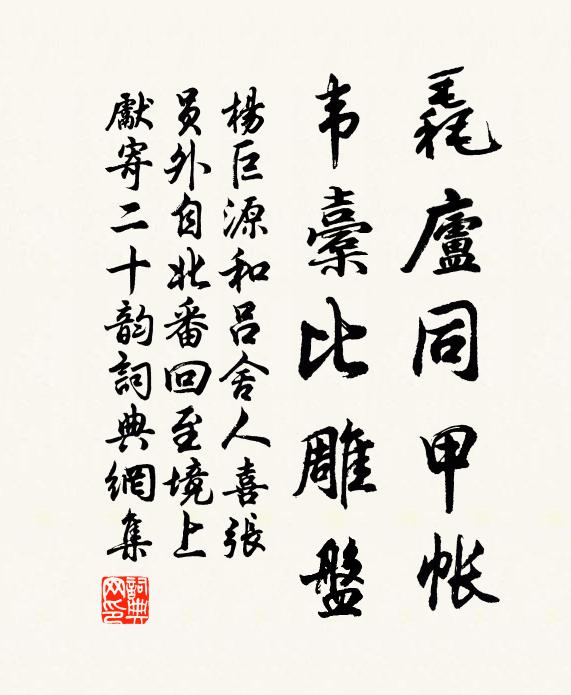 毳廬同甲帳
韦橐比雕盤
楊巨源和吕舍人喜張
员外自北番回至境上
獻寄二十韵詞典網集
詞典网印